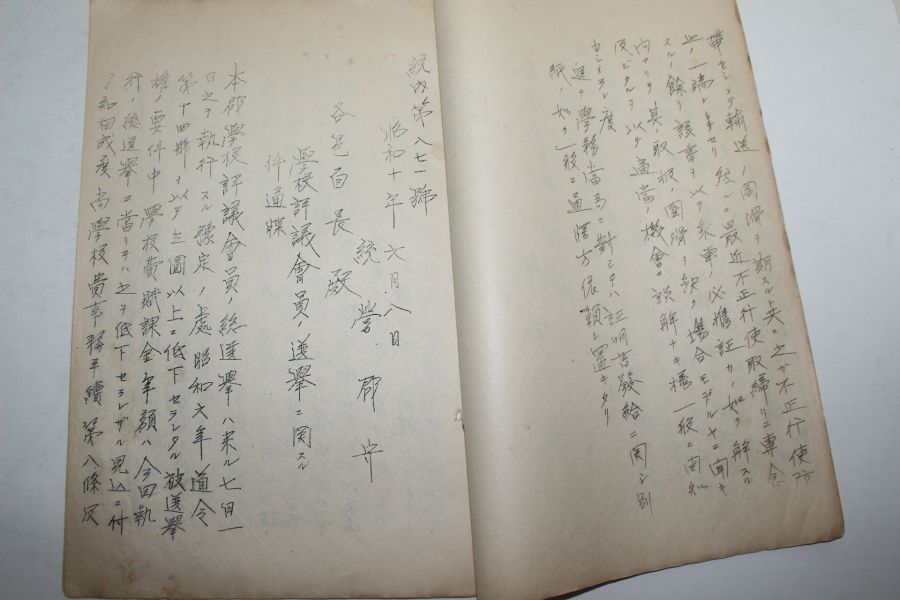 帶セシメテ輸送ノ圓滑ヲ期スル
之ガ不正行使防
止ノ一端ト
最近不正行使取締リニ專念
スルノ餘リ該書ヲ以テ
ノ必携証カノ如ク解スル
向アリテ其ノ取扱ノ圓滑ヲ缺ク場合モ
聞キ
及ビタルヲ以テ適當ノ機會ニ誤解ナキ樣一般ニ周知
セシメラレ度
追テ學務當局ニ對シテハ証明書發給ニ関シ別
紙ノ如ク一般ニ通牒方依頼シ置キタリ
統内第八七一號
昭和十年六月八日
統營郡守
各邑面長殿
學校評議會員ノ選擧ニ関スル
件通牒
本郡學校評議會員ノ總選擧ハ來ル七月一
日之ヲ執行スル豫定ノ處昭和六年道令
第十四號ヲ以テ三圓以上ニ低下セラレタル被選擧
權ノ要件中學校費賦課金年額ハ今回執
行ノ總選擧ニ當リテハ之ヲ低下セラレザル見込ニ付
了知相成度尚學校費事務手續第八條反